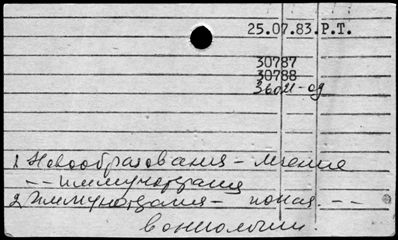 25.07.83.Р.Т.
30787
30788
36011-од
1. Новообразования – мнение
-- иммунотерапия
2. Иммунотерапия – --
в онкологии.